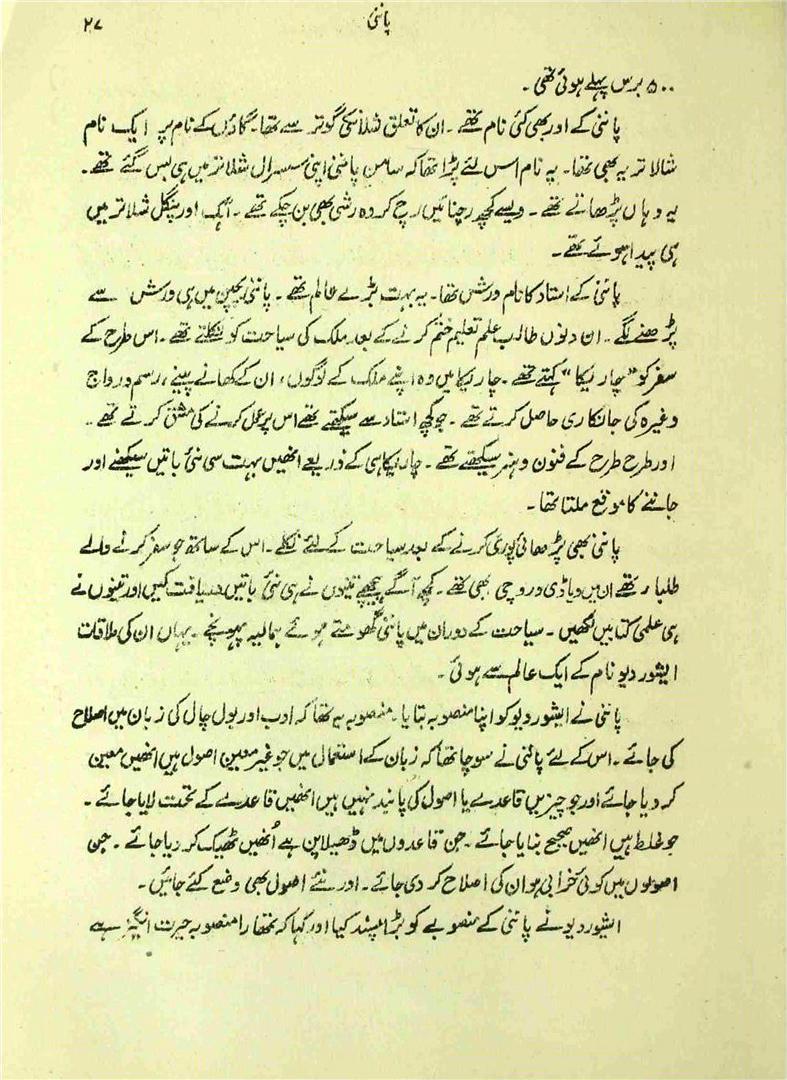 پاننی
۲۷
۵۰۰ برس پہلے ہوئی تھی۔
پاننی کے اور بھی کئی نام تھے۔ ان کا تعلق شلانکی گوتر سے تھا۔ گاؤں کے نام پر ایک نام
شالاتریہ بھی تھا۔ یہ نام اس لئے پڑا تھا کہ سامن پاننی اپنی سسرال شلاتر میں ہی بس گئے تھے۔
یہ وہاں پڑھاتے تھے۔ ویسے کچھ رچنائیں رچ کر وہ رشی بھی بن چکے تھے۔ آہک اور پنگل شلاتر میں
ہی پیدا ہوئے تھے۔
پاننی کے استاد کا نام ورشس تھا۔ یہ بہت بڑے عالم تھے۔ پاننی بچپن میں ہی ورش سے
پڑھنے لگے۔ ان دنوں طالب علم تعلیم ختم کرنے کے بعد ملک کی سیاحت کو نکلتے تھے۔ اس طرح کے
سفر کو "چاریکا" کہتے تھے۔ چاریکا میں وہ اپنے ملک کے لوگوں، ان کے کھانے پینے، رسم و رواج
وغیرہ کی جانکاری حاصل کرتے تھے۔ جو کچھ استاد سے سیکھتے تھے اس پر عمل کرنے کی مشق کرتے تھے۔
اور طرح طرح کے فنون و ہنر سیکھتے تھے۔ چاریکا ہی کے ذریعے انھیں بہت سی نئی باتیں سیکھنے اور
جاننے کا موقع ملتا تھا۔
پاننی بھی پڑھائی پوری کرنے کے بعد سیاحت کے لئے نکلے۔ اس کے ساتھ جو سفر کرنے والے
طلبار تھے ان میں ویاڈی وروچی بھی تھے۔ کچھ آگے پیچھے تینوں نے ہی نئی باتیں دریافت کیں اور تینوں نے
ہی علمی کتابیں لکھیں۔ سیاحت کے دوران میں پاننی گھومتے ہوئے ہمالیہ پہونچے۔ یہاں ان کی ملاقات
ایشور دیو نام کے ایک عالم سے ہوئی۔
پاننی نے ایشور دیو کو اپنا منصوبہ بتایا۔ منصوبہ یہ تھا کہ ادب اور بول چال کی زبان میں اصلاح
کی جائے۔ اس کے لئے پاننی نے سوچا تھا کہ زبان کے استعمال میں جو غیر معین اصول ہیں انھیں معین
کر دیا جائے اور جو چیزیں قاعدے یا اصول کی پابند نہیں ہیں انھیں قاعدے کے تحت لایا جائے۔
جو غلط ہیں انھیں صحیح بنایا جائے۔ جن قاعدوں میں ڈھیلاپن ہے اُنھیں ٹھیک کر دیا جائے۔ جن
اصولوں میں کوئی خرابی ہو ان کی اصلاح کر دی جائے۔ اور نئے اصول بھی وضع کئے جائیں۔
ایشور دیو نے پاننی کے منصوبے کو بڑا پسند کیا اور کہا کہ تمھارا منصوبہ حیرت انگیز ہے